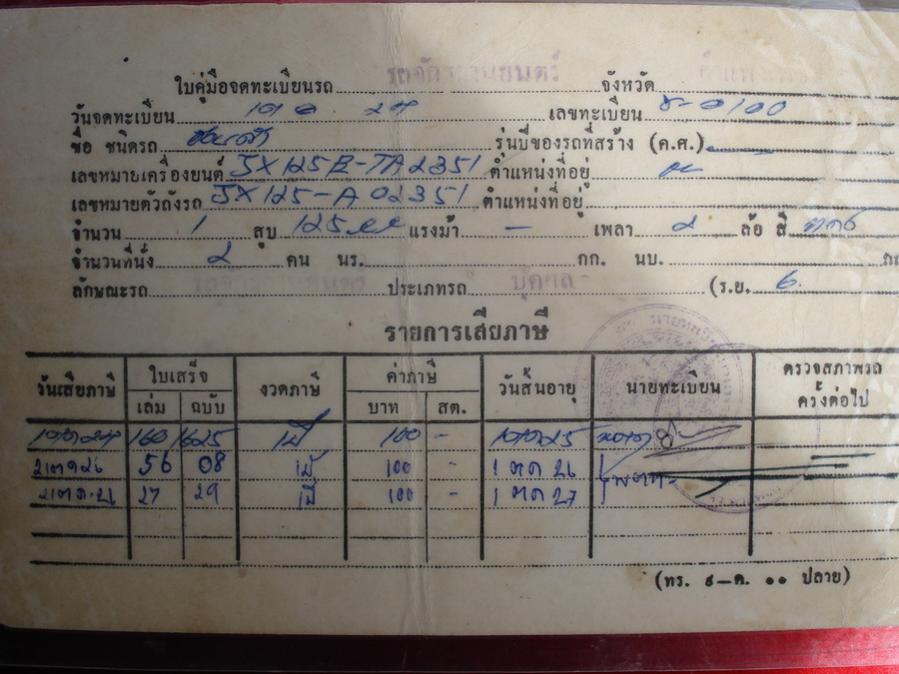 ใบคู่มือจดทะเบียนรถ รถจักรยานยนตร์ จังหวัด
วันจดทะเบียน เลขทะเบียน
ชื่อ ชนิดรถ รุ่นปีของรถที่สร้าง (ค.ศ.)
เลขหมายเครื่องยนต์ JX125E-TA2351 ตำแหน่งที่อยู่
เลขหมายตัวถังรถ JX125-A02351 ตำแหน่งที่อยู่
จำนวน 1 สูบ 125 แรงม้า - เพลา ๒ ล้อ สี
จำนวนที่นั่ง 2 คน นร. กก. นบ.
ลักษณะรถ ประเภทรถ บุคคล (ร.ย. 6
รายการเสียภาษี
วันเสียภาษี ใบเสร็จ งวดภาษี ค่าภาษี วันสิ้นอายุ นายทะเบียน ตรวจสภาพรถ
ครั้งต่อไป
เล่ม ฉบับ บาท สต.
160 1625 1ปี 100 -
56 08 1ปี 100 - 1 ตค 26
27 29 1ปี 100 - 1 ตค 27
(ทร. ๙—ต. ๑๑ ปลาย)